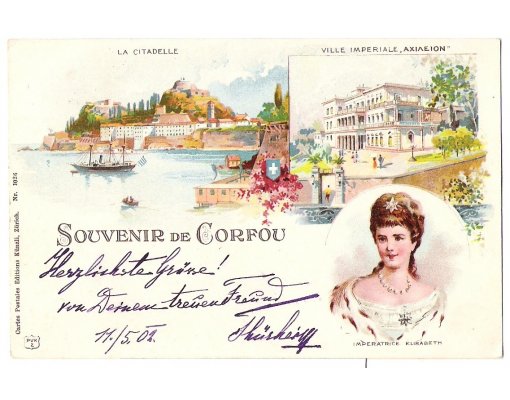 LA CITADELLE
VILLE IMPERIALE „ΑΧΙΛΕΙΟΝ"
SOUVENIR DE CORFOU
Herzlichste Grüsse!
von Deinem treuen Freund
11./5. 02.
IMPERATRICE ELISABETH
Cartes Postales Editions Künzli, Zürich. Nr. 1924